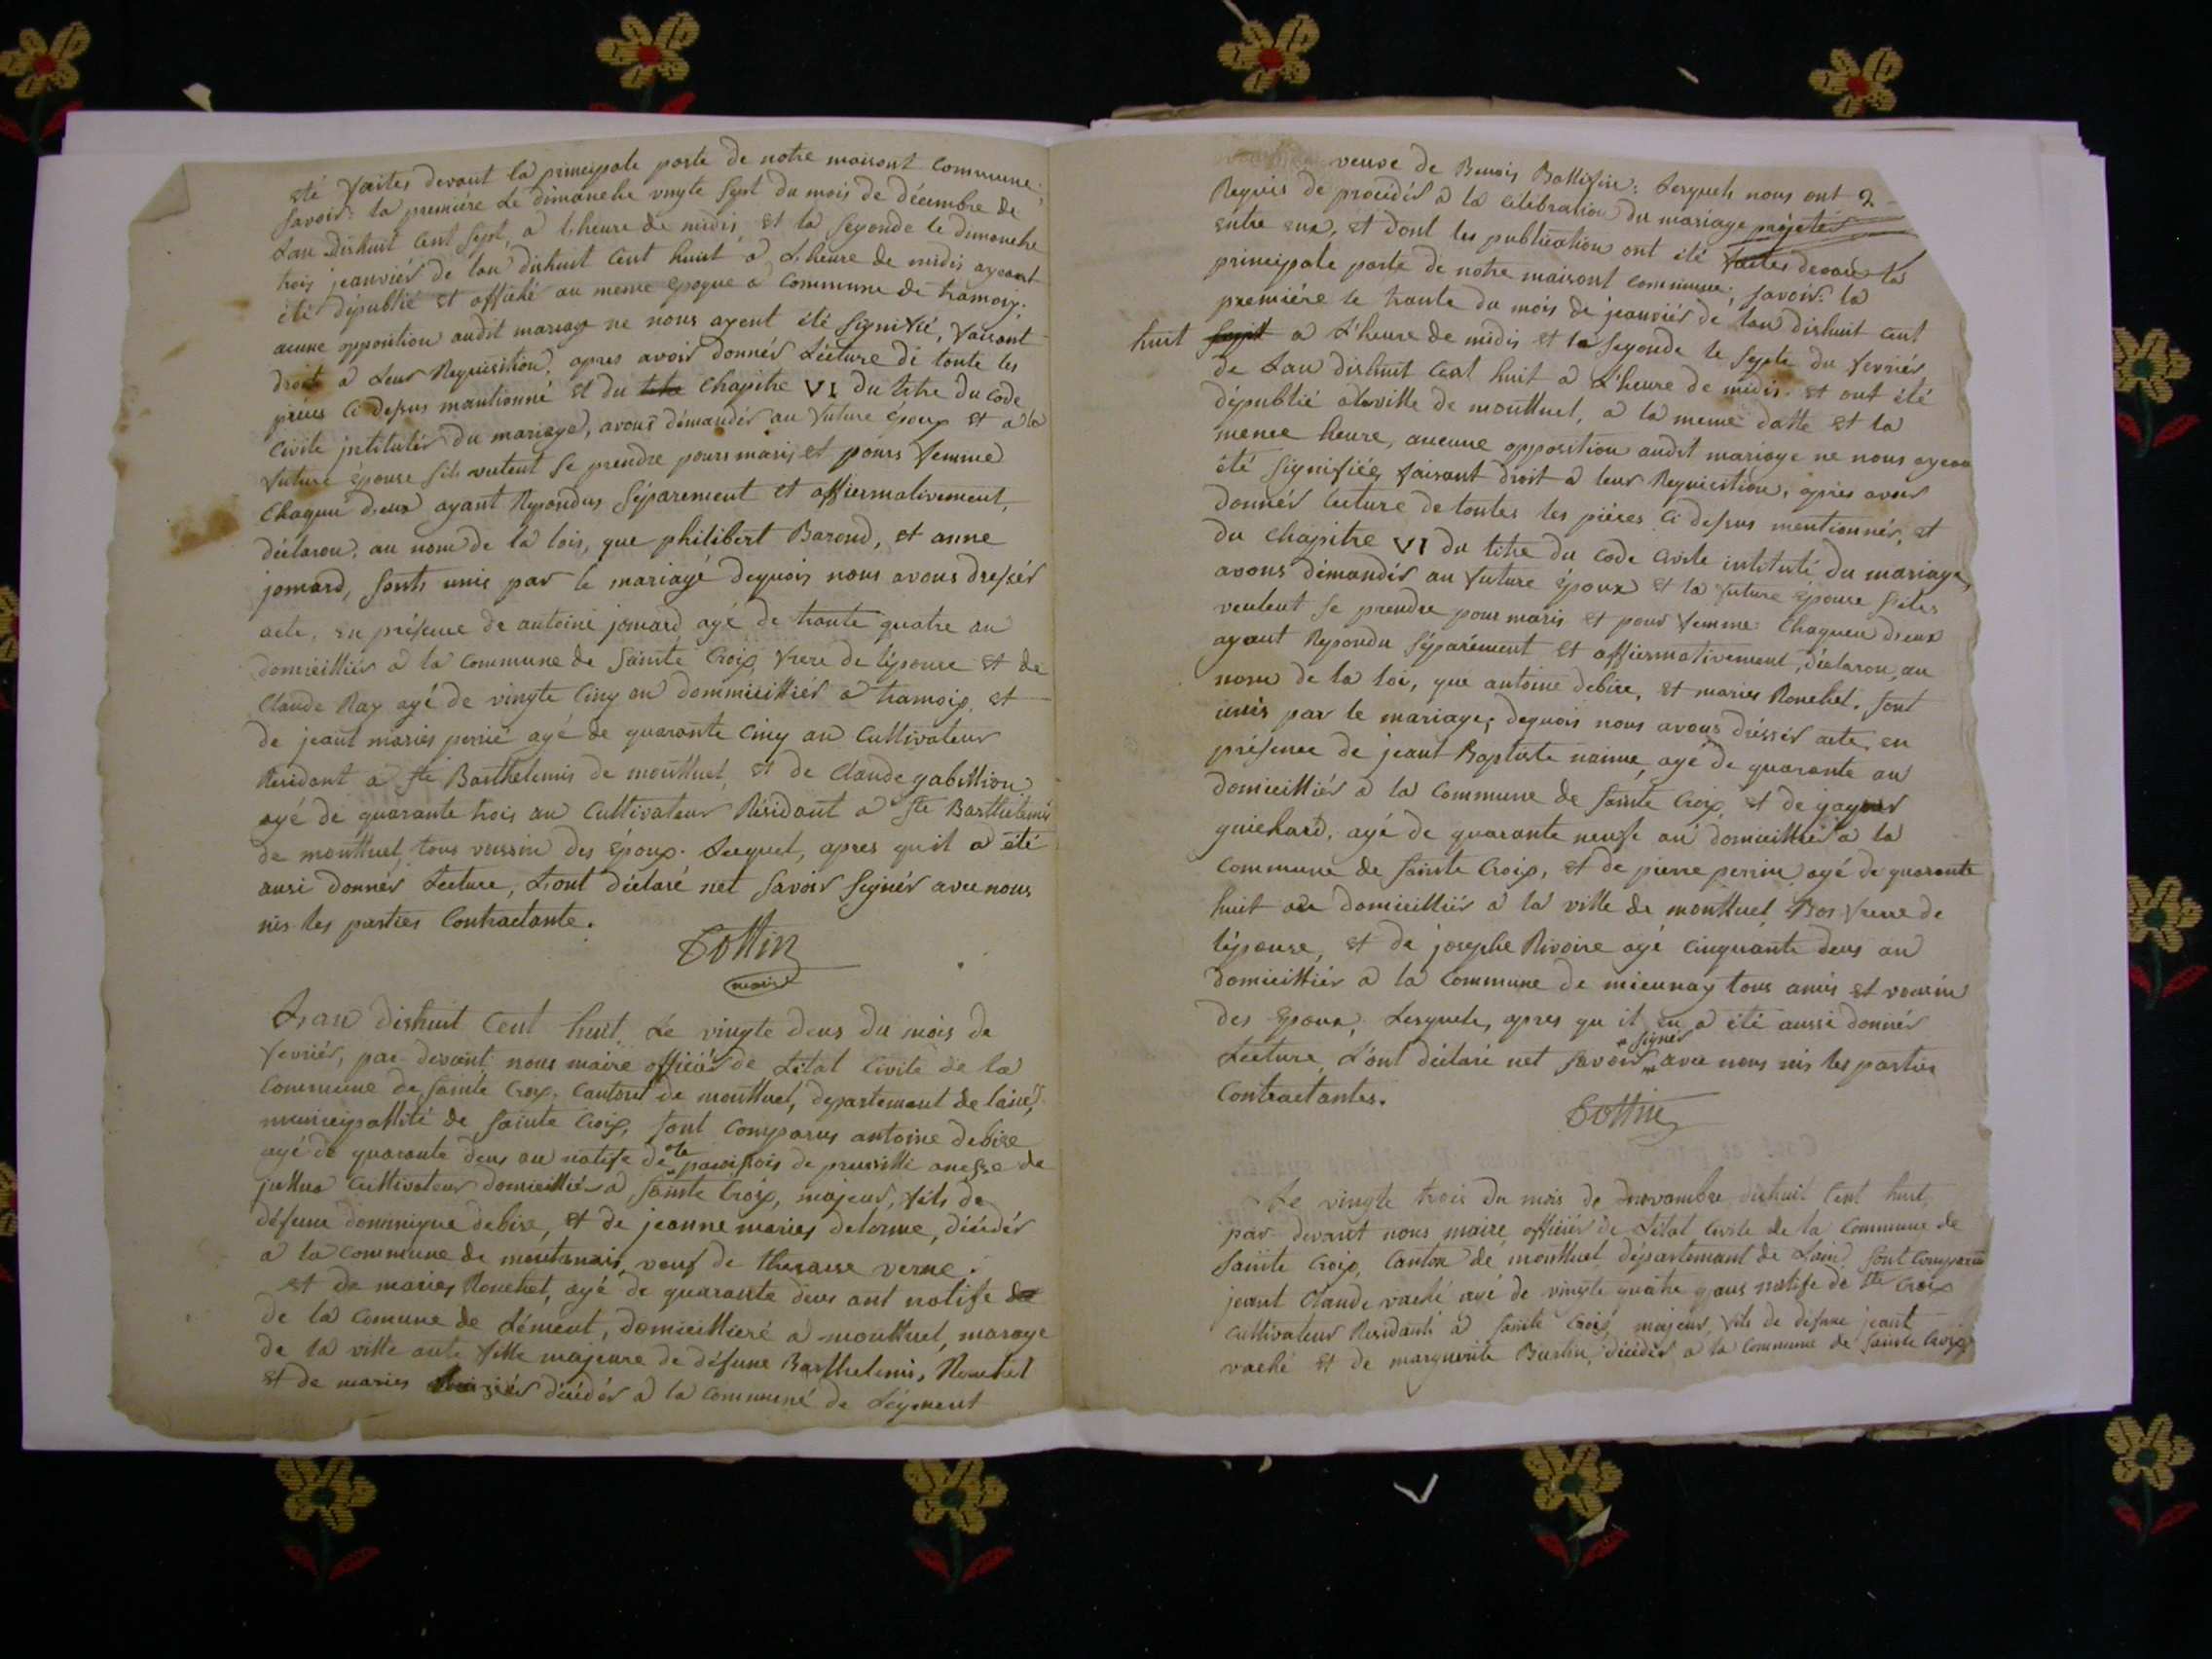 été faites devant la principale porte de notre maisont commune,
savoir: la premiére le dimanche vingte sept du mois de décembre de
Lan dishuit Cent sept, a l'heure de midis, et la segonde le dimanche
trois jeanviér de lan dishuit Cent huit a L'heure de midis ayeant
été dépublié et affiché au meme epoque a Commune de tramoix.
aucune opposition audst mariage ne nous ayent été Signifié, faisant
droit a Leur Requisition, apres avoir donnér Lécture de toute les
piéces Ci dessus mantionné et du Chapitre VI du titre du code
Civile intitulér du mariage, avons démandér au future époux et a la
future épouse sils veulent se prendre pours maris et pours femme
Chaquu deux ayant Repondus Séparement et affiermativement,
déclarou, au nom de la lois, que philibert Barond, et anne
jomard, sonts unis par le mariagé dequois nous avons dressér
acte, en présence de antoine jomard agé de trante quatre an
domicilliér a la Commune de Sainte Croix, frere de l'épouse et de
Claude Ray agé de vingte Cinq an dommicilliér a tramoix, et
de jeant maries perrié agé de quarante Cinq an Cultivateur
Résidant a ste Barthelemis de monttuel, et de Claude gabillion
agé de quarante trois an Cultivateur Résidant a ste Barthelemis
de monttuel, tous voissin des époux. Lequel, apres quil a été
ausi donnér Lecture, L'ont déclaré net savoir Signér avec nous
nis les parties Contractante.
Cottin
maire
Lan dishuit Cent huit Le vingte deus du mois de
fevriér, par devant nous maire officiér de L'état Civile de la
Commune de Sainte Croix, Cantont de monttuel, departement de lain,
municipallité de Sainte Croix, sont Comparus antoine debise
agé de quarante deus an natife de la paroissois de prussille anesse de
juttua Cultivateur domicilliér a Sainte Croix, majeur, fils de
défunc dominique debise, et de jeanne maries delorme, décédér
a la Commune de montanais, veuf de theresse verne.
et de maries Rouchet, agé de quarante deus ant natife
de la Comune de Lément, domicillieré a monttuel, marage
de la ville aute fille majeure de défunc Barthelemis, Rouchet
et de maries décédér a la Communé de Légment
veuve de Benois Battisin: Lesquels nous ont 2
Requis de procédér a la célébration du mariage projetér
entre eux, et dont les publication ont été faites devant la
principale porte de notre maisont commune, savoir: la
premiére le trante du mois de jeanviér de lan dishuit cent
huit sept a L'heure de midis et la segonde le septe du fevriér
de Lan dishuit Cent huit a L'heure de midis et ont été
dépublié alaville de monttuel, a la meme datte et la
meme heure, aucune opposition audst mariage ne nous ayeant
été signifiée, faisant droit a leur Requisition, apres avoir
donnér lecture de toutes les piéces Ci dessus mentionnér, et
du chapitre VI du titre du code Civile intitulé du mariage,
avons démandér au future époux et la future épouse siles
veulent se prendre pour maris et pour femme: Chaqueu deux
ayant Repondu séparément et affiermativement, déclarou, au
nom de la loi, que antoine debise, et maries Rouchet. sont
unis par le mariage; dequois nous avons dressér acte, en
présence de jeant Baptiste naime, agé de quarante an
domicilliér a la Commune de Sainte Croix, et de
guichard, agé de quarante neufe an domicillié a la
Commune de Sainte Croix, et de pierre perrin agé de quarante
huit an domicilliér a la ville de monttuel Bos frere de
l'épouse, et de josephe Rivoire agé cinquante deus an
domicilliér a la Commune de mieunay tous amis et voissin
des époux, Lesquels, apres qu il en a été aussi donnér
Lecture, L'ont déclaré net savoir signér avec nous nis les parties
Contractantes.
Cottin
Le vingte trois du mois de novambre dishuit Cent huit,
par devant nous maire officiér de L'état Civile de la Commune de
Sainte Croix, Canton de monttuel départemant de Lain, sont Comparus
jeant Claude vaché agé de vingte quatre ans natife de ste Croix
Cultivateur Residant a Sainte Croix, majeur, fils de défunc jeant
vaché et de marguerite Burlin, décédér a la Commune de Sainte Croix